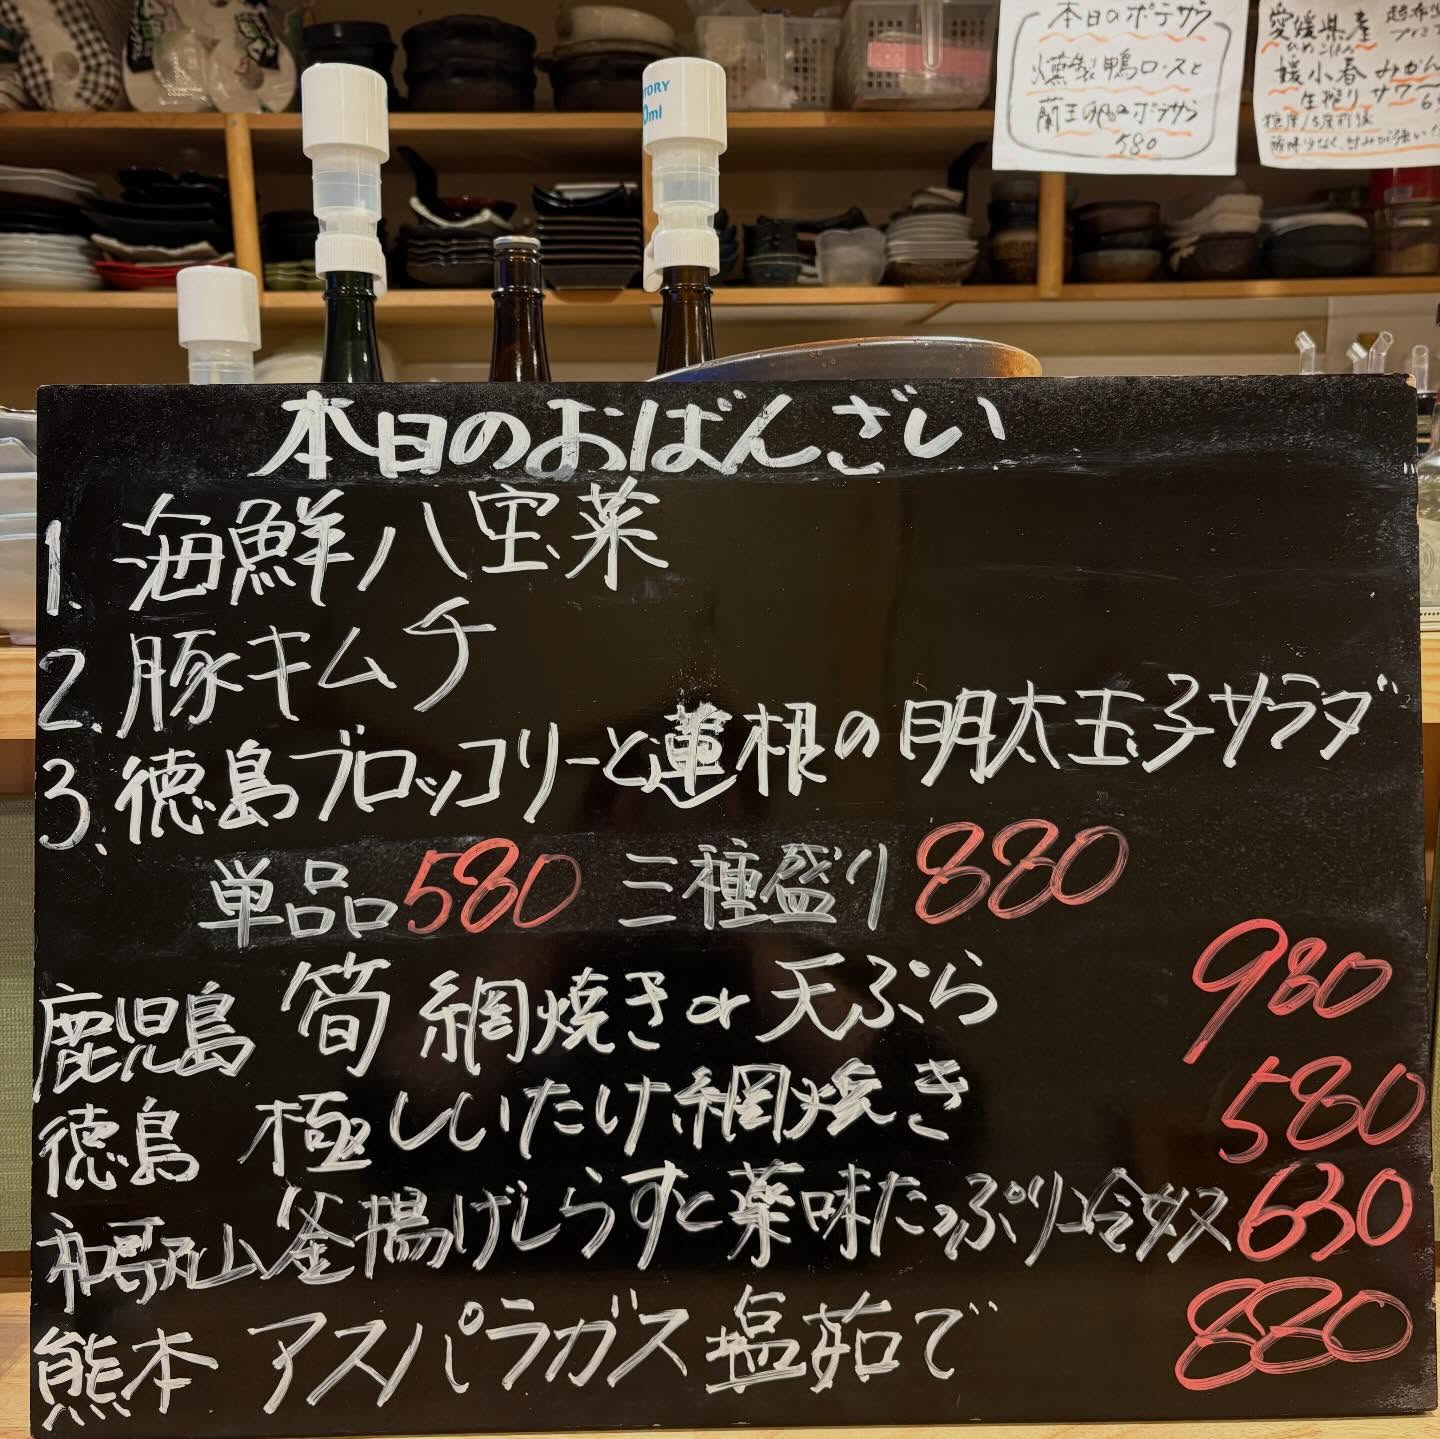 本日のポテサラ
燻製鴨ロースと
蘭王卵のポテサラ
580
愛媛県産
ひめこはる
媛小春みかん
生搾りサワー
糖度15度前後
酸味少なく、甘みが強い
TORY
0ml
本日のおばんざい
1. 海鮮八宝菜
2. 豚キムチ
3. 徳島ブロッコリーと蓮根の明太玉子サラダ
単品580 三種盛り880
鹿児島 筍 網焼きor天ぷら 980
徳島 極しいたけ網焼き 580
和歌山 釜揚げしらすと薬味たっぷり冷ダス 630
熊本 アスパラガス塩茹で 880